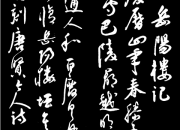 岳陽樓記
慶曆四年春滕
守巴陵郡越明
通人和百廢具
修岳陽樓增
刻唐賢今人詩